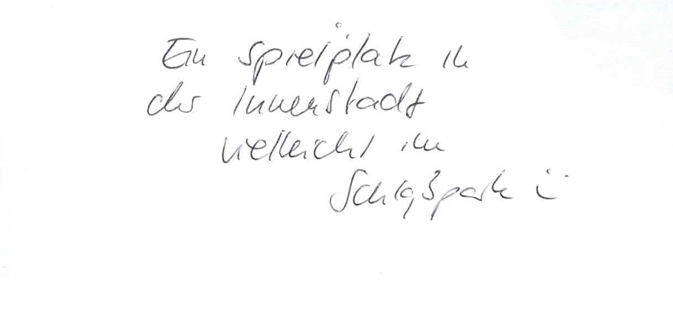 Ein Spielplatz in
der Innenstadt
vielleicht im
Schloßpark ü